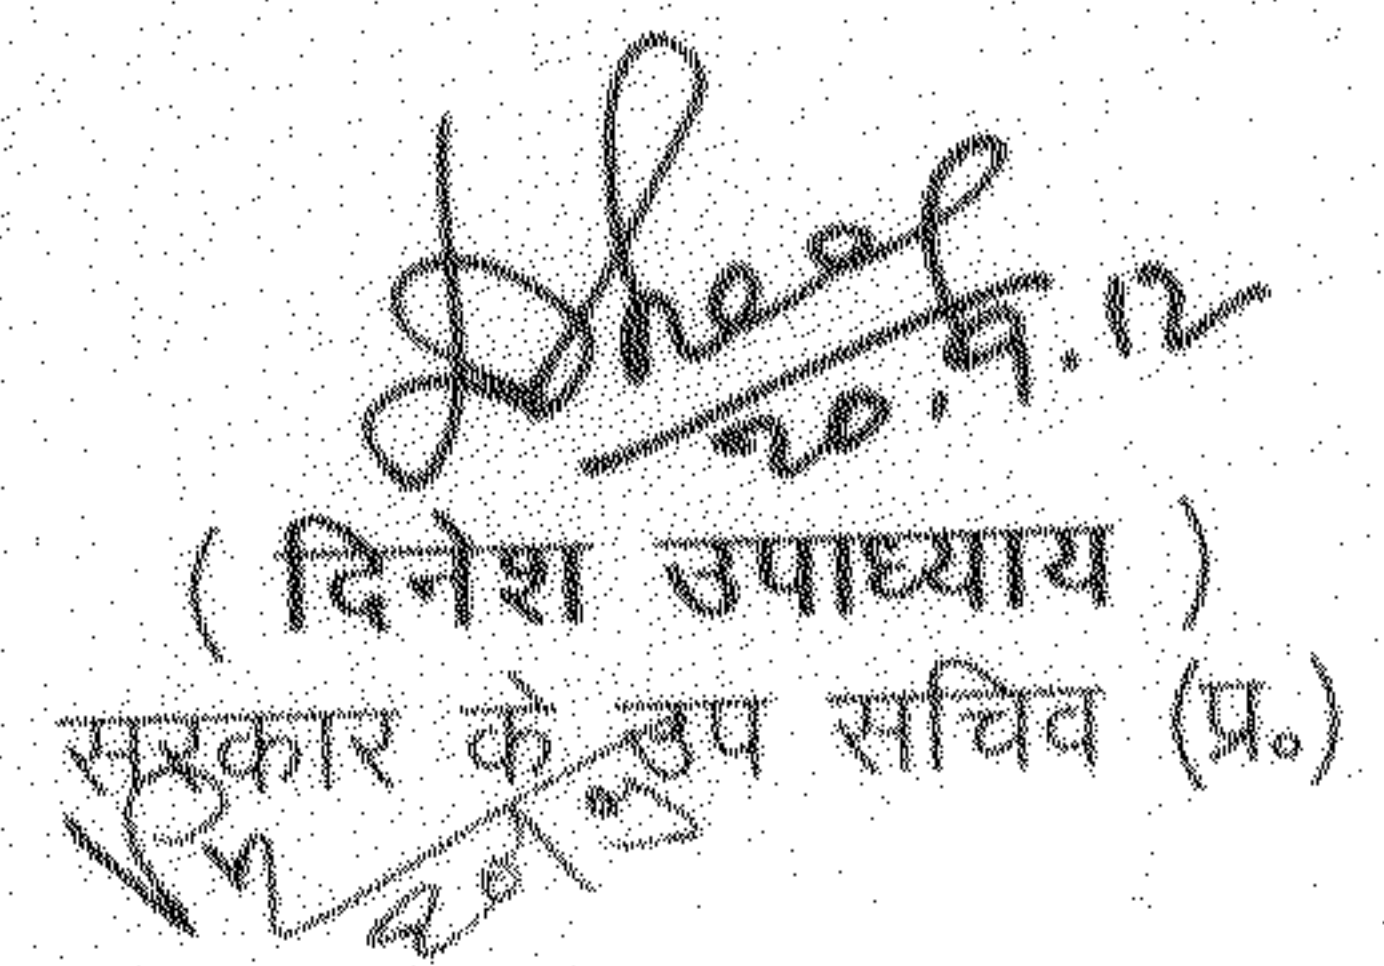 20.9.12
( दिनेश उपाध्याय )
सरकार के उप सचिव (प्र.)